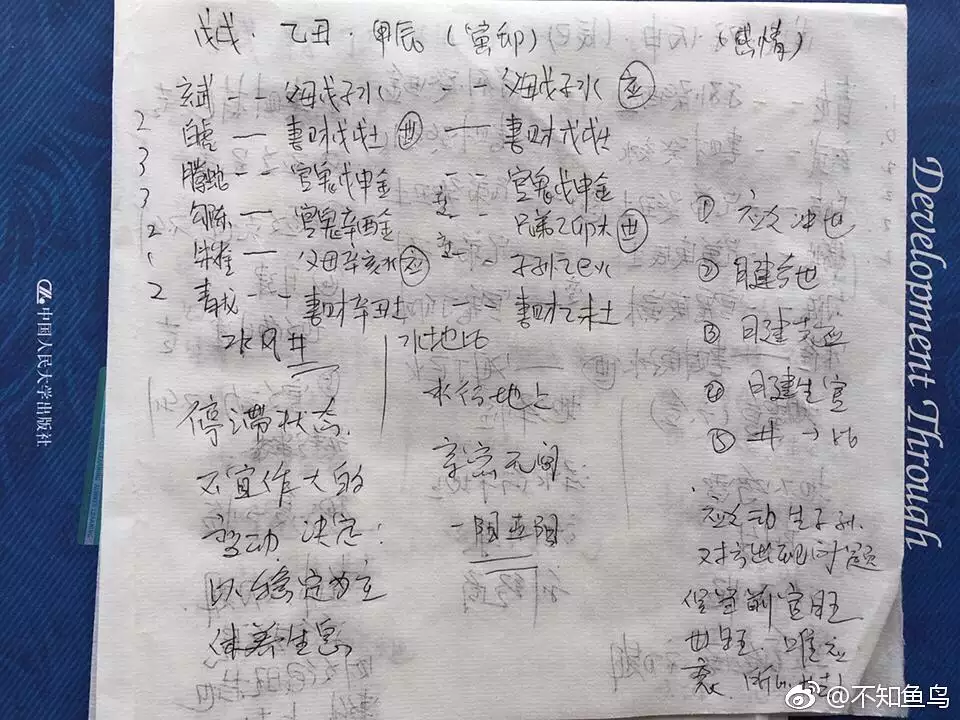 戊戌·乙丑·甲辰(寅卯) (感情)
玄武 - - 父母戊子水 - - 父母戊子水 应
2 白虎 — 妻财戊戌土 世 — 妻财戊戌土
3 腾蛇 - - 官鬼戊申金 - - 官鬼戊申金
3 勾陈 — 官鬼辛酉金 - - 兄弟乙卯木 世
2 朱雀 — 父母辛亥水 应 - - 子孙乙巳火
1
2 青龙 - - 妻财辛丑土 妻财乙未土
水风井
停滞状态
不宜作大的
变动 决定:
以稳定为主
休养生息
水地比
水行地上
亲密无间
一阳五阴
① 应爻冲世
② 日建合世
③ 日建克应
④ 日建生官
⑤ 井→比
应爻动生子孙
对方出现问题
官旺
世旺. 唯应
衰.
Development Through
中国人民大学出版社
@不知鱼鸟